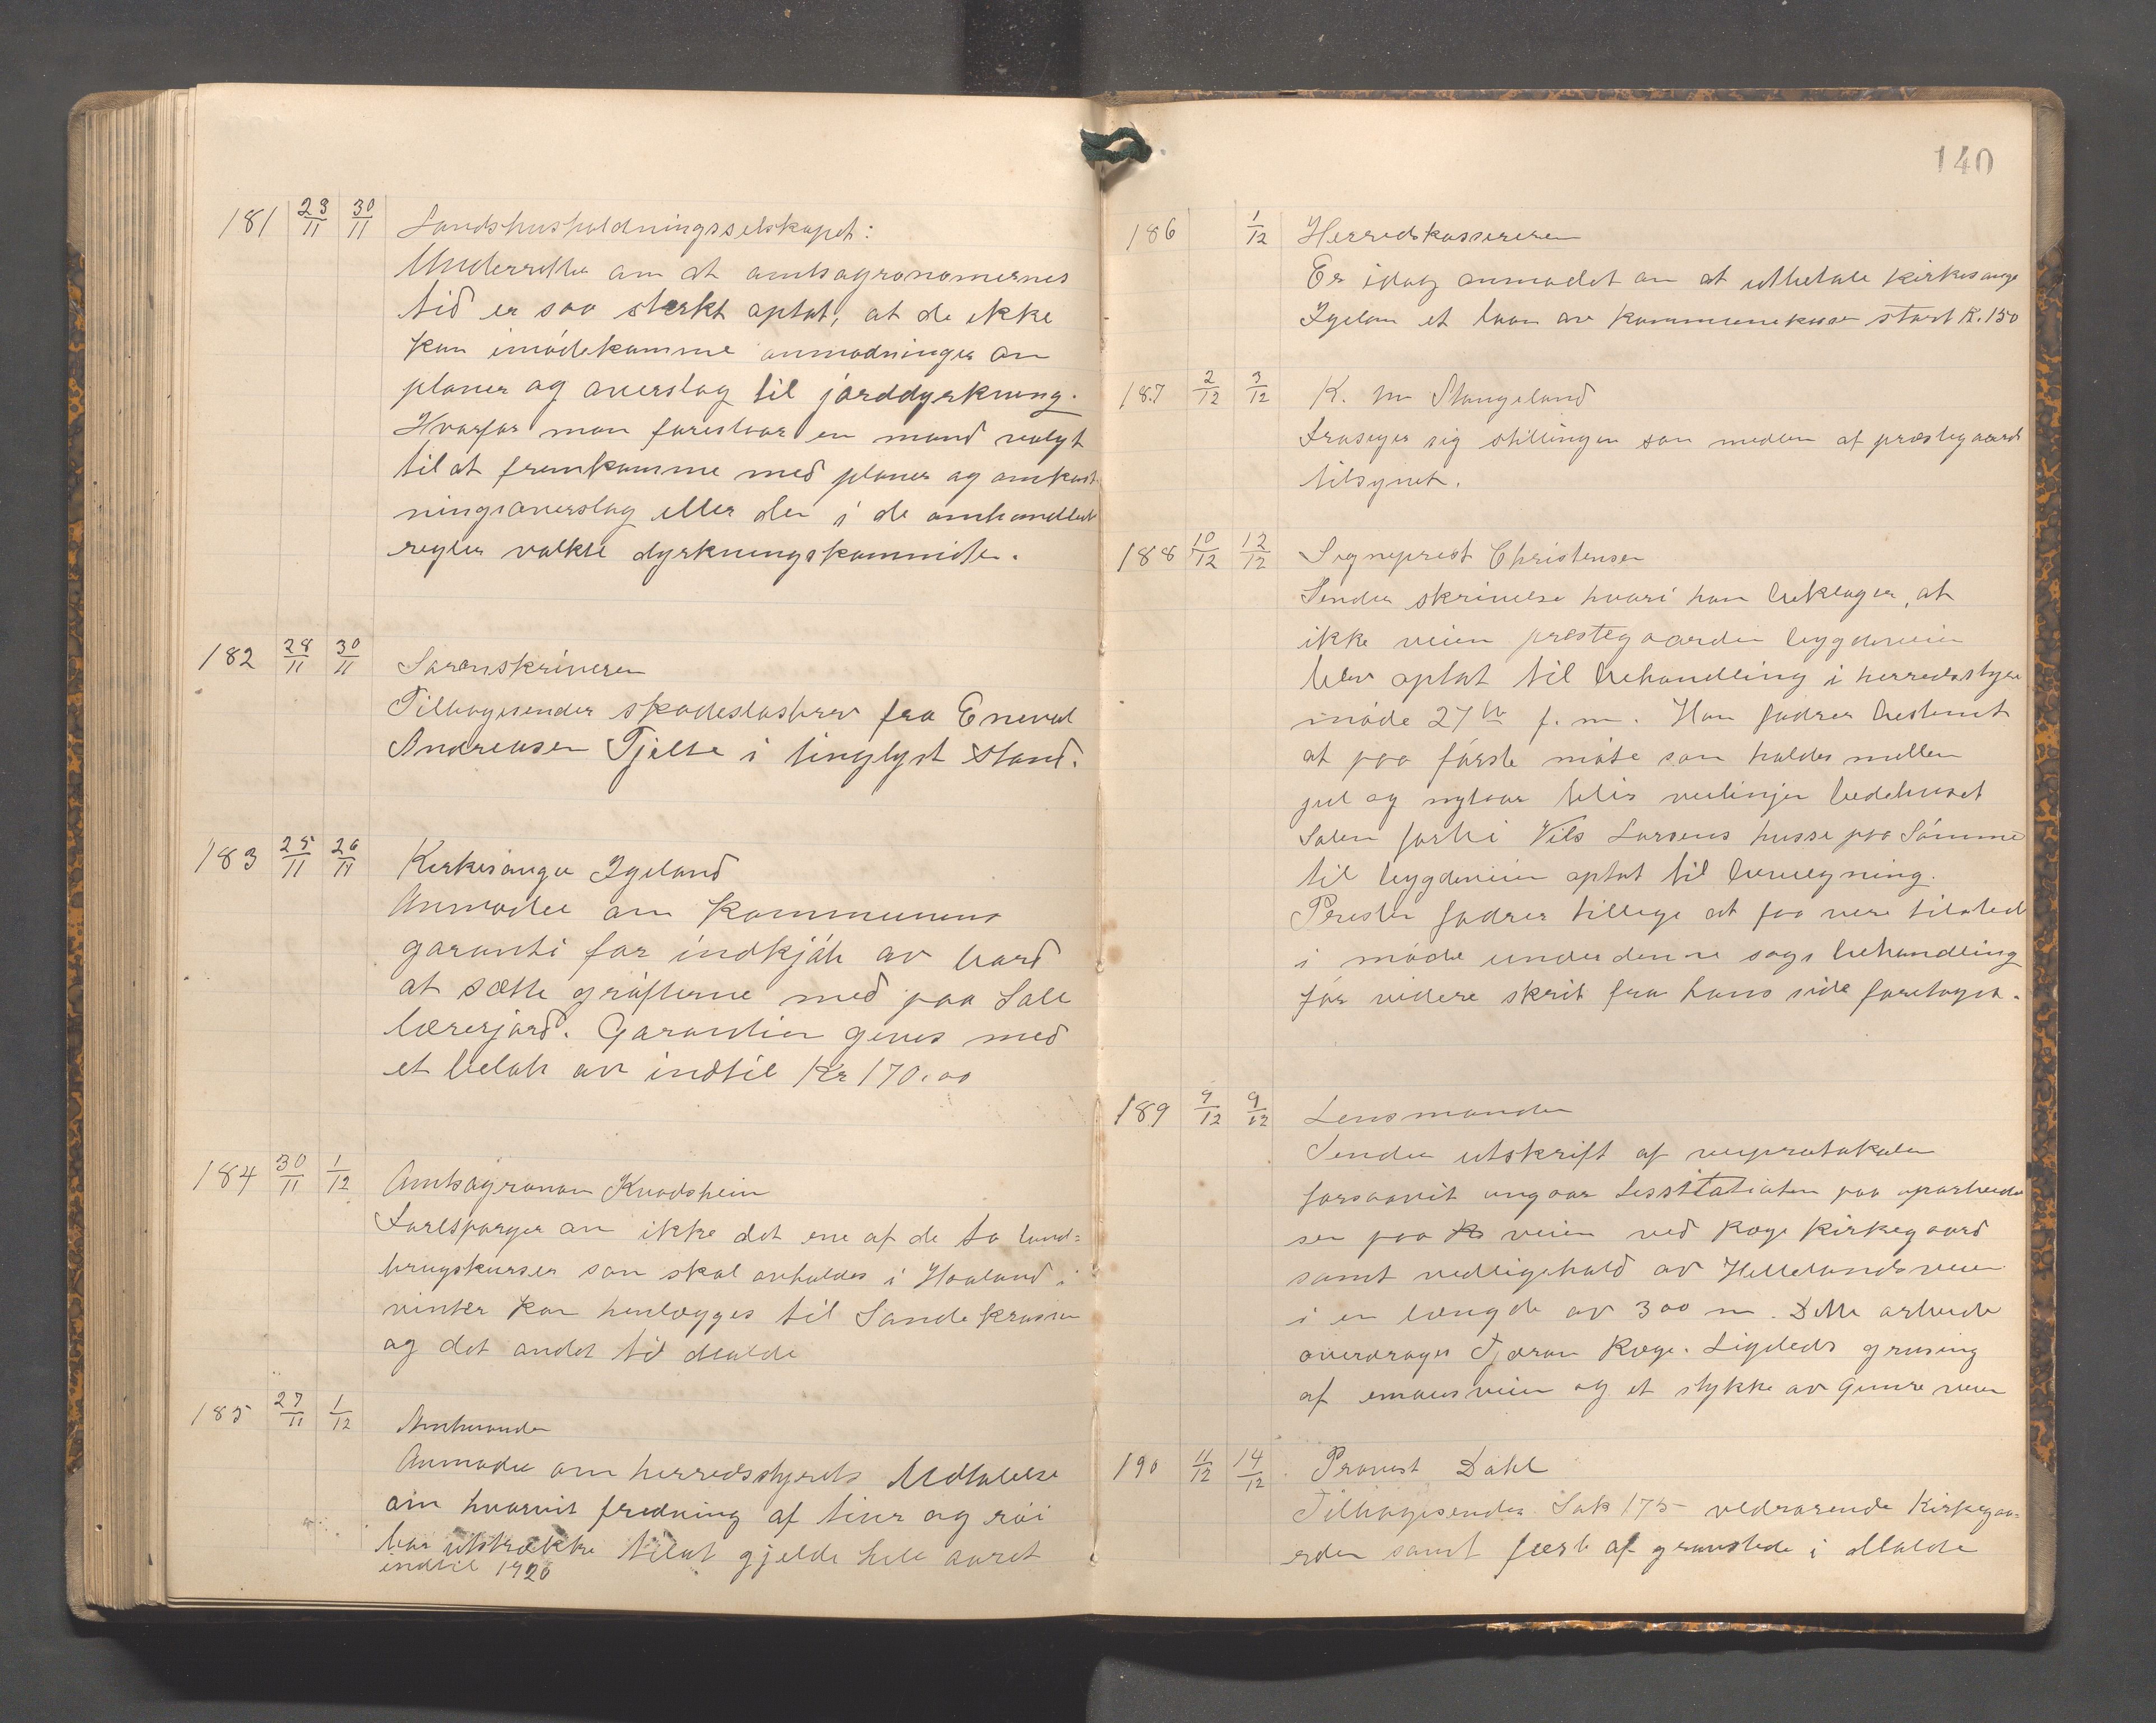 181 23/11 30/11 Landshusholdningsselskapet:
Underretter om at amtsagronomernes
tid er saa sterkt optat, at de ikke
kan imødekomme anmodninger om
planer og overslag til jorddyrkning.
Hvorfor man foreslaar en mand valgt
til at fremkomme med planer og omkost
ningsoverslag eller den i de omhandlede
regler valkte dyrkningskommiten.
182 28/11 30/11 Sorenskriveren
Tilbagesender skadesløsbrev fra Enevald
Andreasen Tjelta i tinglyst stand.
183 25/11 26/11 Kirkesanger Igeland
Anmoder om kommunens
garanti for indkjøb av bord
at sætte grøfterne med paa Sole
lærerjord. Garantien gives med
et beløb av indtil Kr 170.00
184 30/11 1/12 Amtsagronom Knodsheim
Forespørger om ikke det ene af de to land=
brugskurser som skal avholdes i Haaland i
vinter kan henlægges til Sandekrossen
og det andet til Malde
185 27/11 1/12 Amtmanden
Anmoder om herredsstyrets Udtalelse
om hvorvit fredning af tiur og røi
bør utstrækkes tilat gjelde hele aaret
indtil 1920
140
186 1/12 Herredskassereren
Er idag anmodet om at utbetale kirkesanger
Igelan et laan av kommunekassen stort K. 150
187 2/12 3/12 K. M Stangeland
Frasiger sig stillingen som medlem af præstegaards
tilsynet.
188 10/12 12/12 Sogneprest Christensen
Sender skrivelse hvori han beklager, at
ikke veien præstegaarden bygdeveien
blev optat til behandling i herredsstyre
møde 27de f. m. Han fodrer bestemt
at paa første møte som holdes mellem
jul og nytaar blir veilinjen bedehuset
Solen forbi Nils Larsens husse paa Sømme
til bygdeveien optat til bevilgning.
Presten fodrer tillige at faa være tilsted
i møde under denne sags behandling
før videre skrit fra hans side foretages.
189 9/12 9/12 Lensmanden
Sender utskrift af veiprotokolen
forsaavit angaar Lessitationen paa oparbeidel
sen paa veien ved Røge kirkegaard
samt vedligehold av Hellelandsveien
i en længde av 300 m. Dette arbeide
overdrages Tjøran Røge. Ligeleds grusing
af emausveien og et stykke av Gimre veien
190 11/12 14/12 Provest Dahl
Tilbagesender Sak 175 vedrørende Kirkegaa=
rden samt fæste af gravstede i Malde